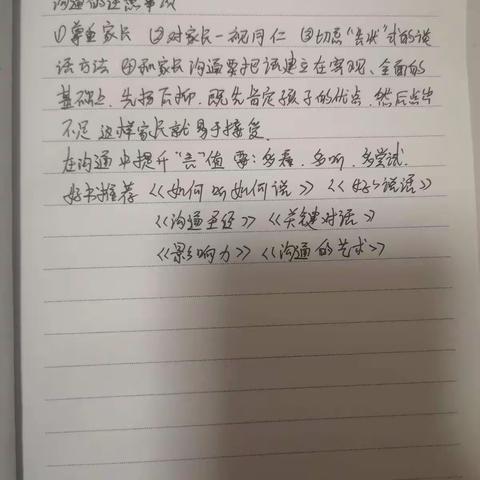 沟通的注意事项
①尊重家长 ②对家长一视同仁 ③切忌“告状”式的谈
话方法 ④和家长沟通要把话建立在客观、全面的
基础上,先扬后抑,既先肯定孩子的优点,然后点出
不足,这样家长就易于接受.
在沟通中提升“言”值 要:多看.多听.多尝试.
好书推荐《如何听如何说》《好好说话》
《沟通圣经》《关键对话》
《影响力》《沟通的艺术》